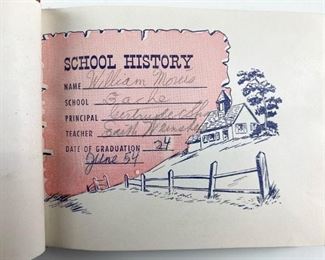 SCHOOL HISTORY
NAME William
SCHOOL
PRINCIPAL Gertrude
TEACHER Faith
DATE OF GRADUATION 24
June 54